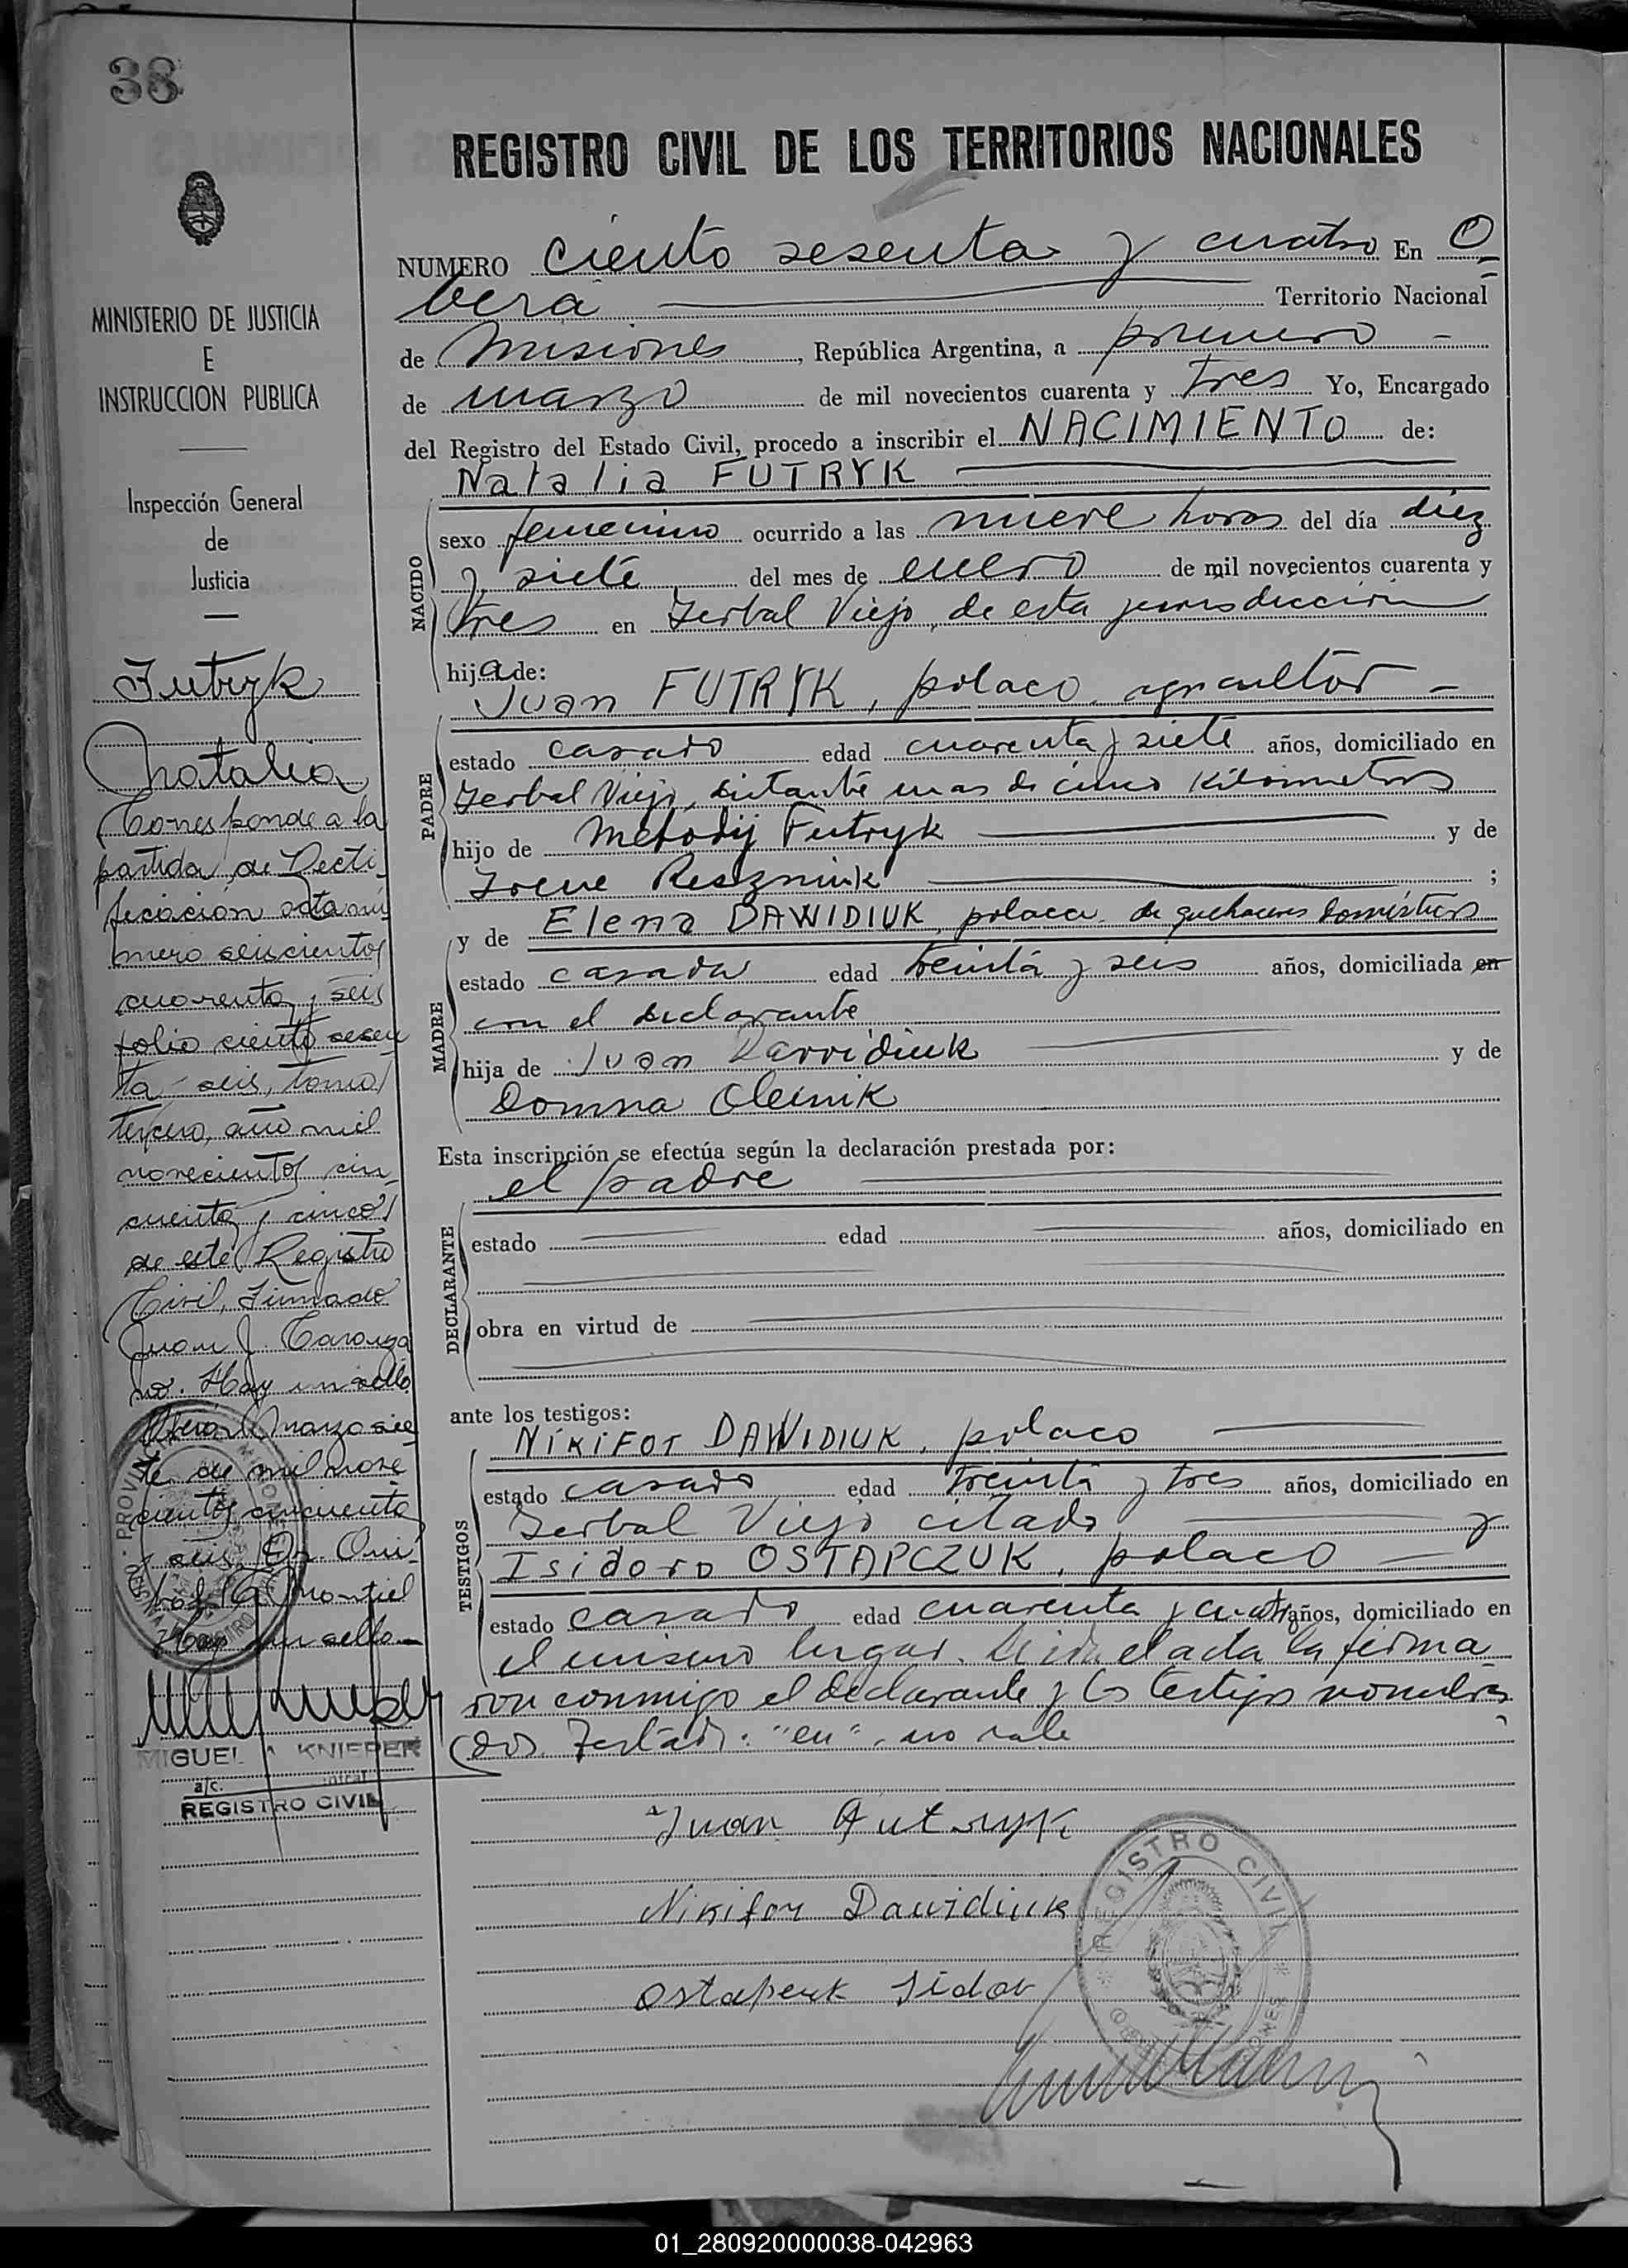 38
REGISTRO CIVIL DE LOS TERRITORIOS NACIONALES
NUMERO ciento sesenta y cuatro En O
bera Territorio Nacional
de Misiones, República Argentina, a primero
de marzo de mil novecientos cuarenta y tres Yo, Encargado
del Registro del Estado Civil, procedo a inscribir el NACIMIENTO de:
Natalia FUTRYK
NACIDO
sexo femenino ocurrido a las nueve horas del día diez
y siete del mes de enero de mil novecientos cuarenta y
tres en Yerbal Viejo, de esta jurisdicción
hija de:
Juan FUTRYK, polaco, agricultor
PADRE
estado casado edad cuarenta y siete años, domiciliado en
Yerbal Viejo, distante mas de cinco kilometros
hijo de Metodij Futryk y de
Irene Reszniuk ;
y de Elena DAWIDIUK, polaca, de quehaceres domésticos
MADRE
estado casada edad treinta y seis años, domiciliada en
con el declarante
hija de Juan Dawidiuk y de
Domna Oleinik
Esta inscripción se efectúa según la declaración prestada por:
el padre
DECLARANTE
estado edad años, domiciliado en
obra en virtud de
ante los testigos:
NIKIFOR DAWIDIUK, polaco
TESTIGOS
estado casado edad treinta y tres años, domiciliado en
Yerbal Viejo citado y
Isidoro OSTAPCZUK, polaco
estado casado edad cuarenta y cuatro años, domiciliado en
el mismo lugar. Leida el acta la firma
ron conmigo el declarante y los testigos nombra
dos. Testado: "en", no vale
Juan Futryk
Nikifor Dawidiuk
Ostapcuk Sidor
REGISTRO CIVIL
MINISTERIO DE JUSTICIA
E
INSTRUCCION PUBLICA
Inspección General
de
Justicia
Futryk
Natalia
Corresponde a la
partida de Recti
ficacion acta nú
mero seiscientos
cuarenta y seis
folio ciento sesen
ta y seis, tomo
tercero, año mil
novecientos cin
cuenta y cinco
de este Registro
Civil, Firmado
Juan J. Caronga
no. Hay un sello
Oberá, Marzo sie
te de mil nove
cientos cincuenta
y seis
Montiel
Hay un sello
MIGUEL A. KNIEPER
a/c.
REGISTRO CIVIL
01_280920000038-042963